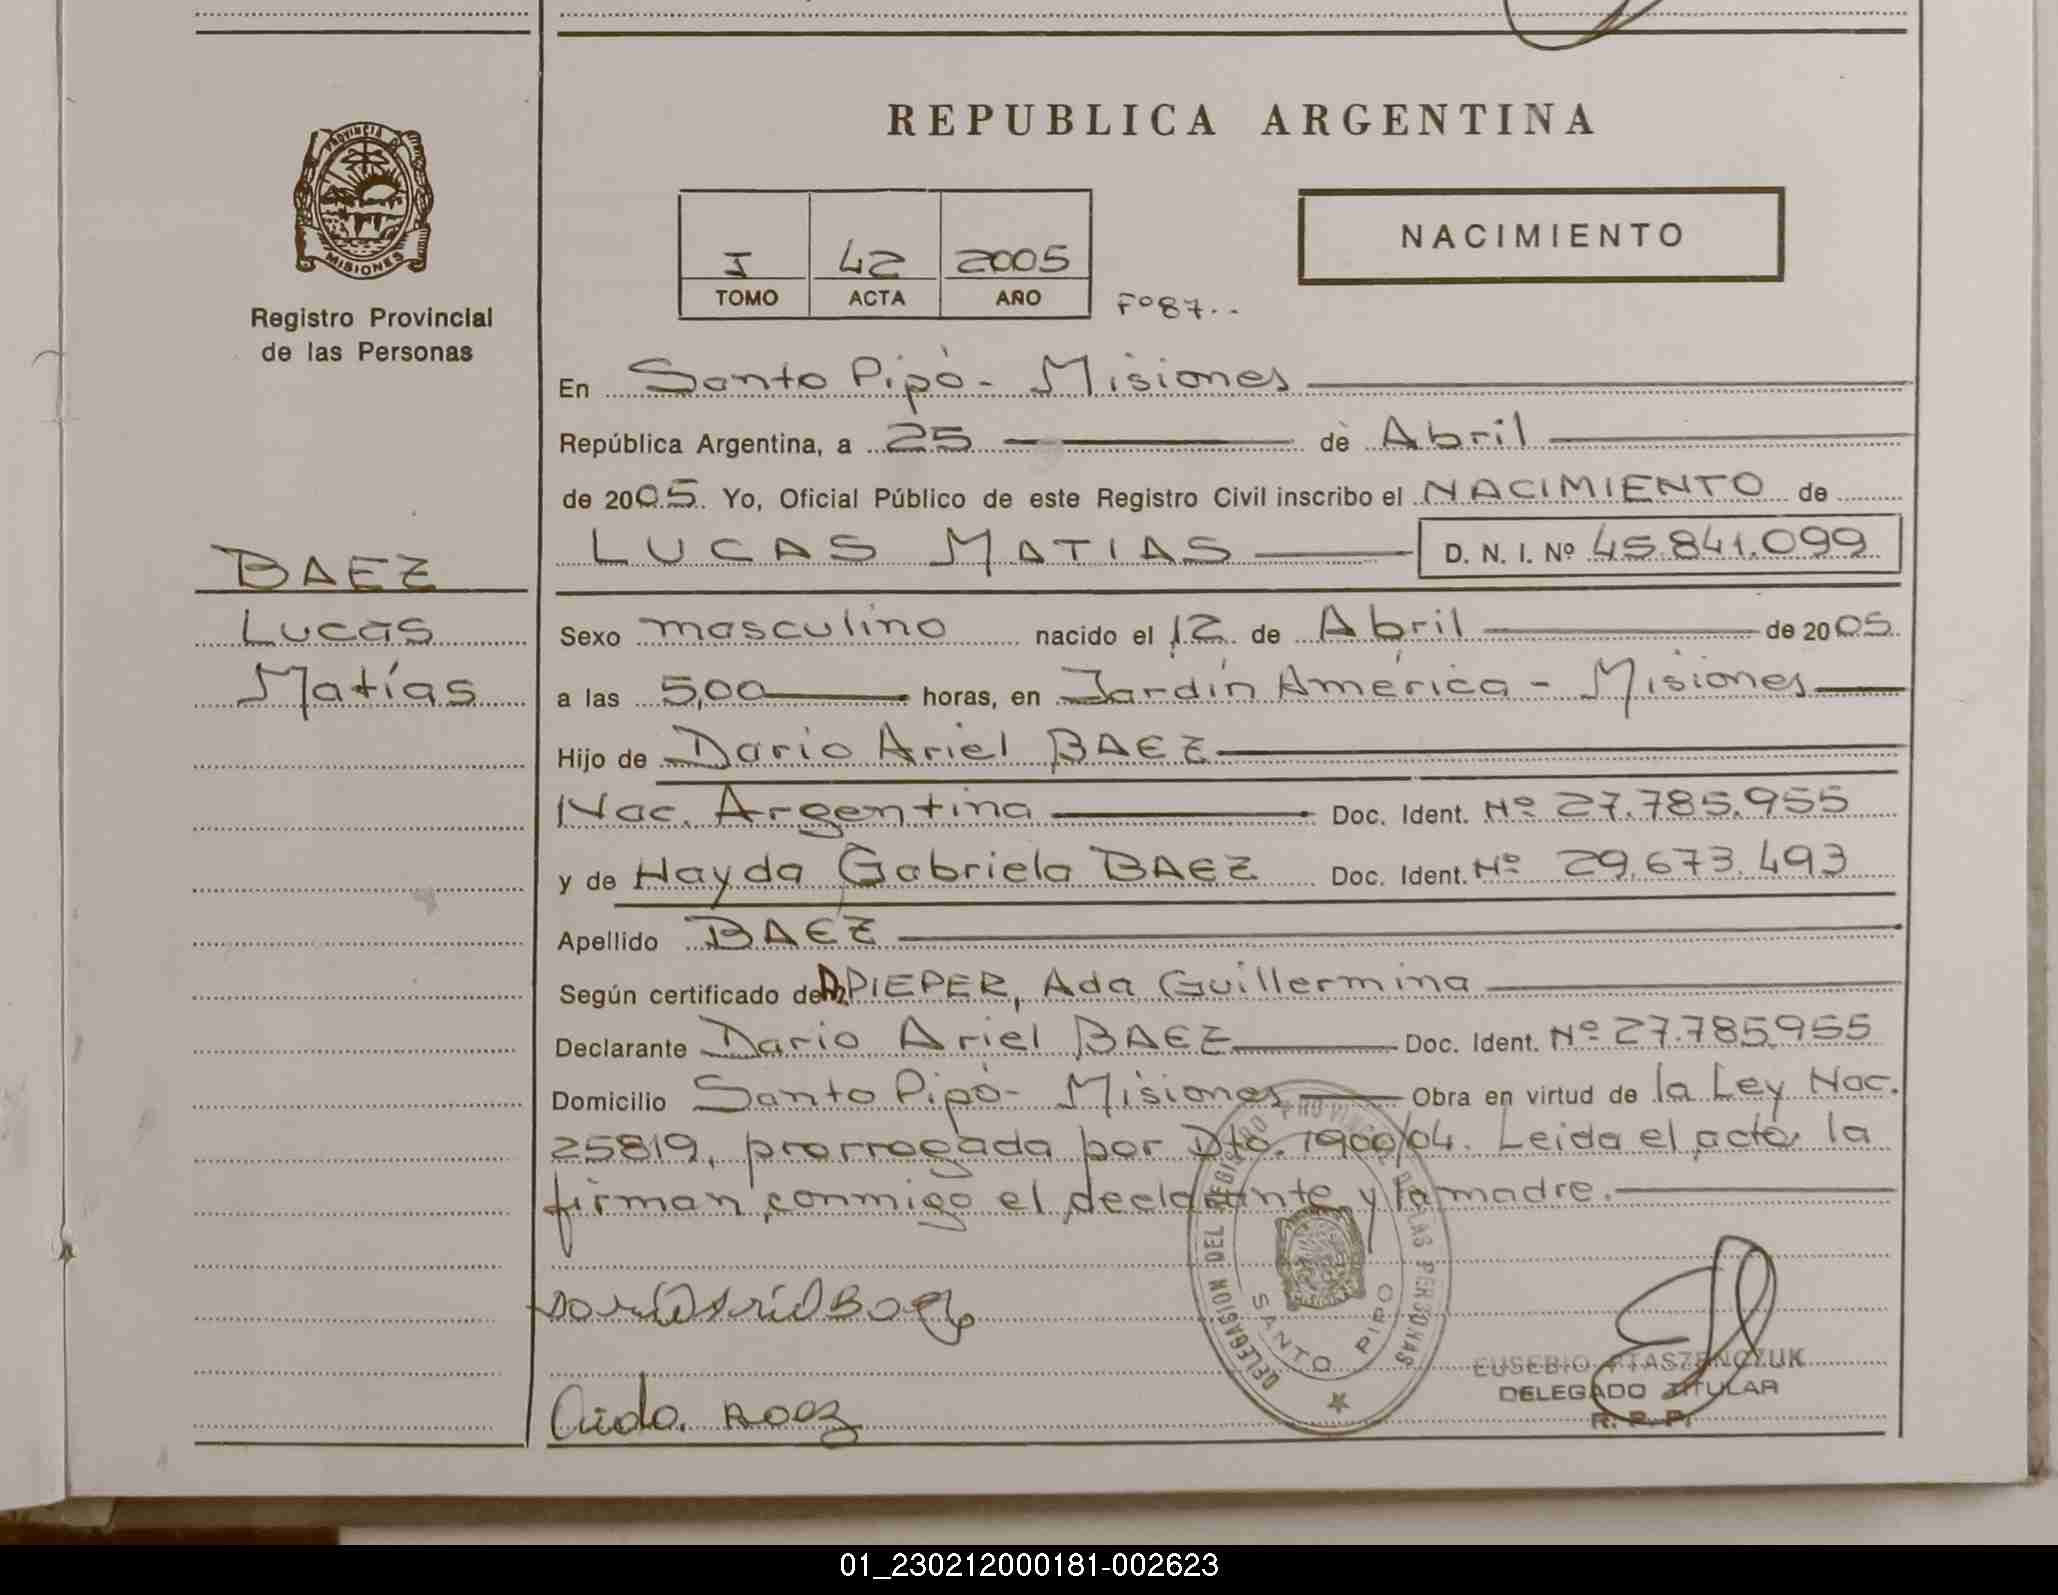 REPUBLICA ARGENTINA
PROVINCIA DE
MISIONES
Registro Provincial
de las Personas
I 42 2005
TOMO ACTA AÑO
Fº87..
NACIMIENTO
En Santo Pipó - Misiones
República Argentina, a 25 de Abril
de 2005. Yo, Oficial Público de este Registro Civil inscribo el NACIMIENTO de
LUCAS MATIAS D. N. I. Nº 45.841.099
BAEZ
Lucas
Matías
Sexo masculino nacido el 12 de Abril de 2005
a las 5,00 horas, en Jardín América - Misiones
Hijo de Dario Ariel BAEZ
Nac. Argentina Doc. Ident. Nº 27.785.955
y de Hayda Gabriela BAEZ Doc. Ident. Nº 29.673.493
Apellido BAEZ
Según certificado de PIEPER, Ada Guillermina
Declarante Dario Ariel BAEZ Doc. Ident. Nº 27.785.955
Domicilio Santo Pipó - Misiones Obra en virtud de la Ley Nac.
25819, prorrogada por Dto. 1900/04. Leida el acta la
firman conmigo el declarante y la madre.
DELEGASION DEL REGISTRO PROVINCIAL DE LAS PERSONAS
SANTO PIPO
EUSEBIO PTASZENCZUK
DELEGADO TITULAR
R. P. P.
01_230212000181-002623